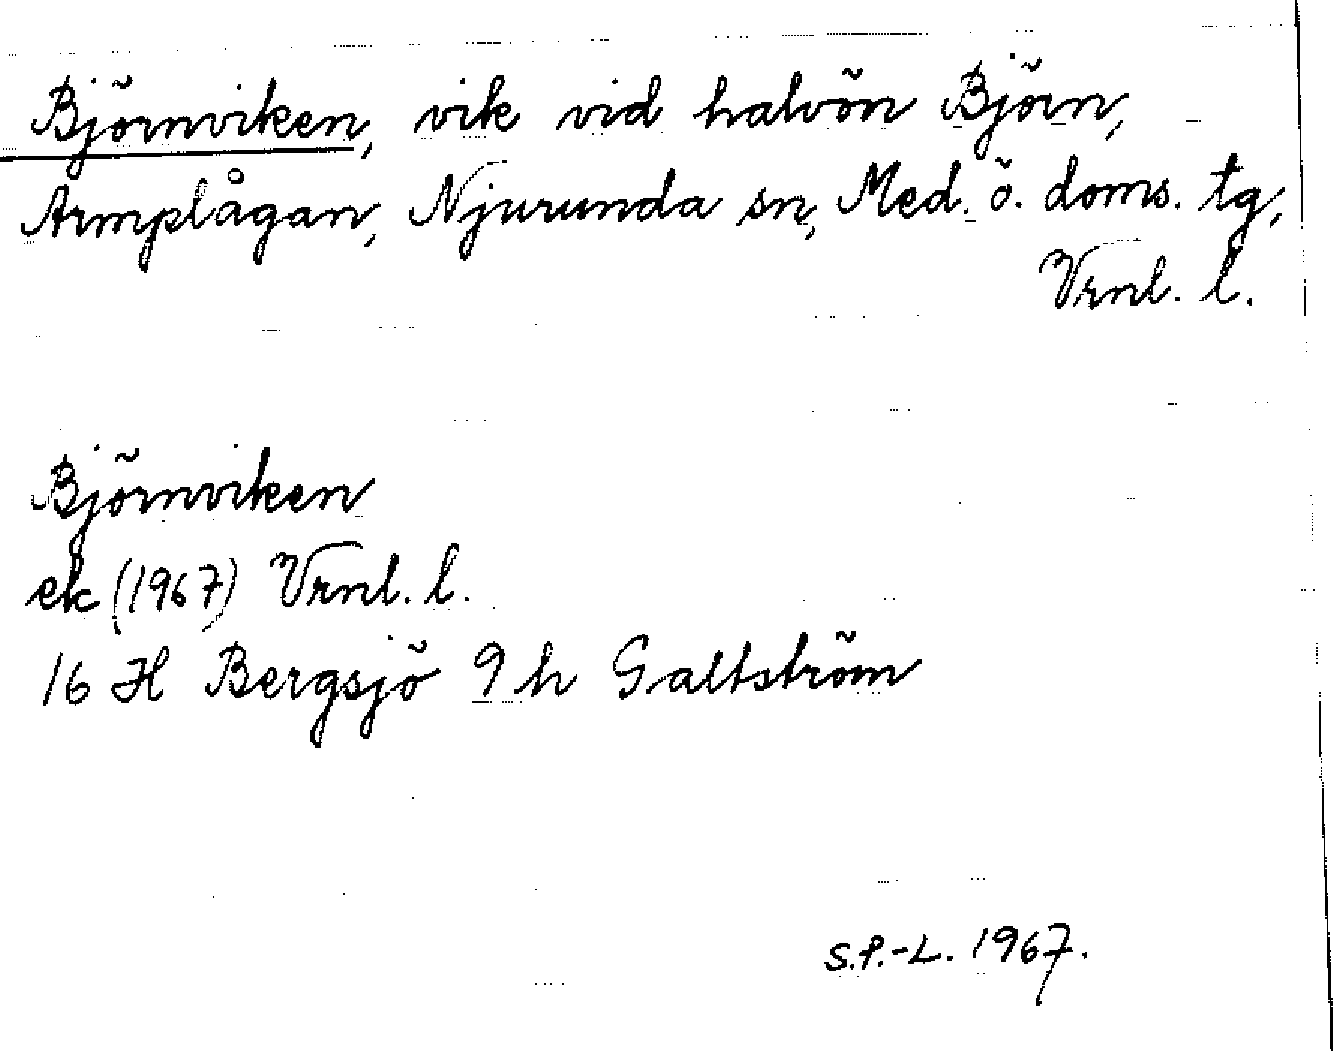 Björnviken, vik vid halvön Björn,
Armplågan, Njurunda sn, Med. ö. doms. tg,
Vrnl. l.
Björnviken
ek (1967) Vrnl. l.
16 H Bergsjö 9 h Galtström
S.P.-L. 1967.